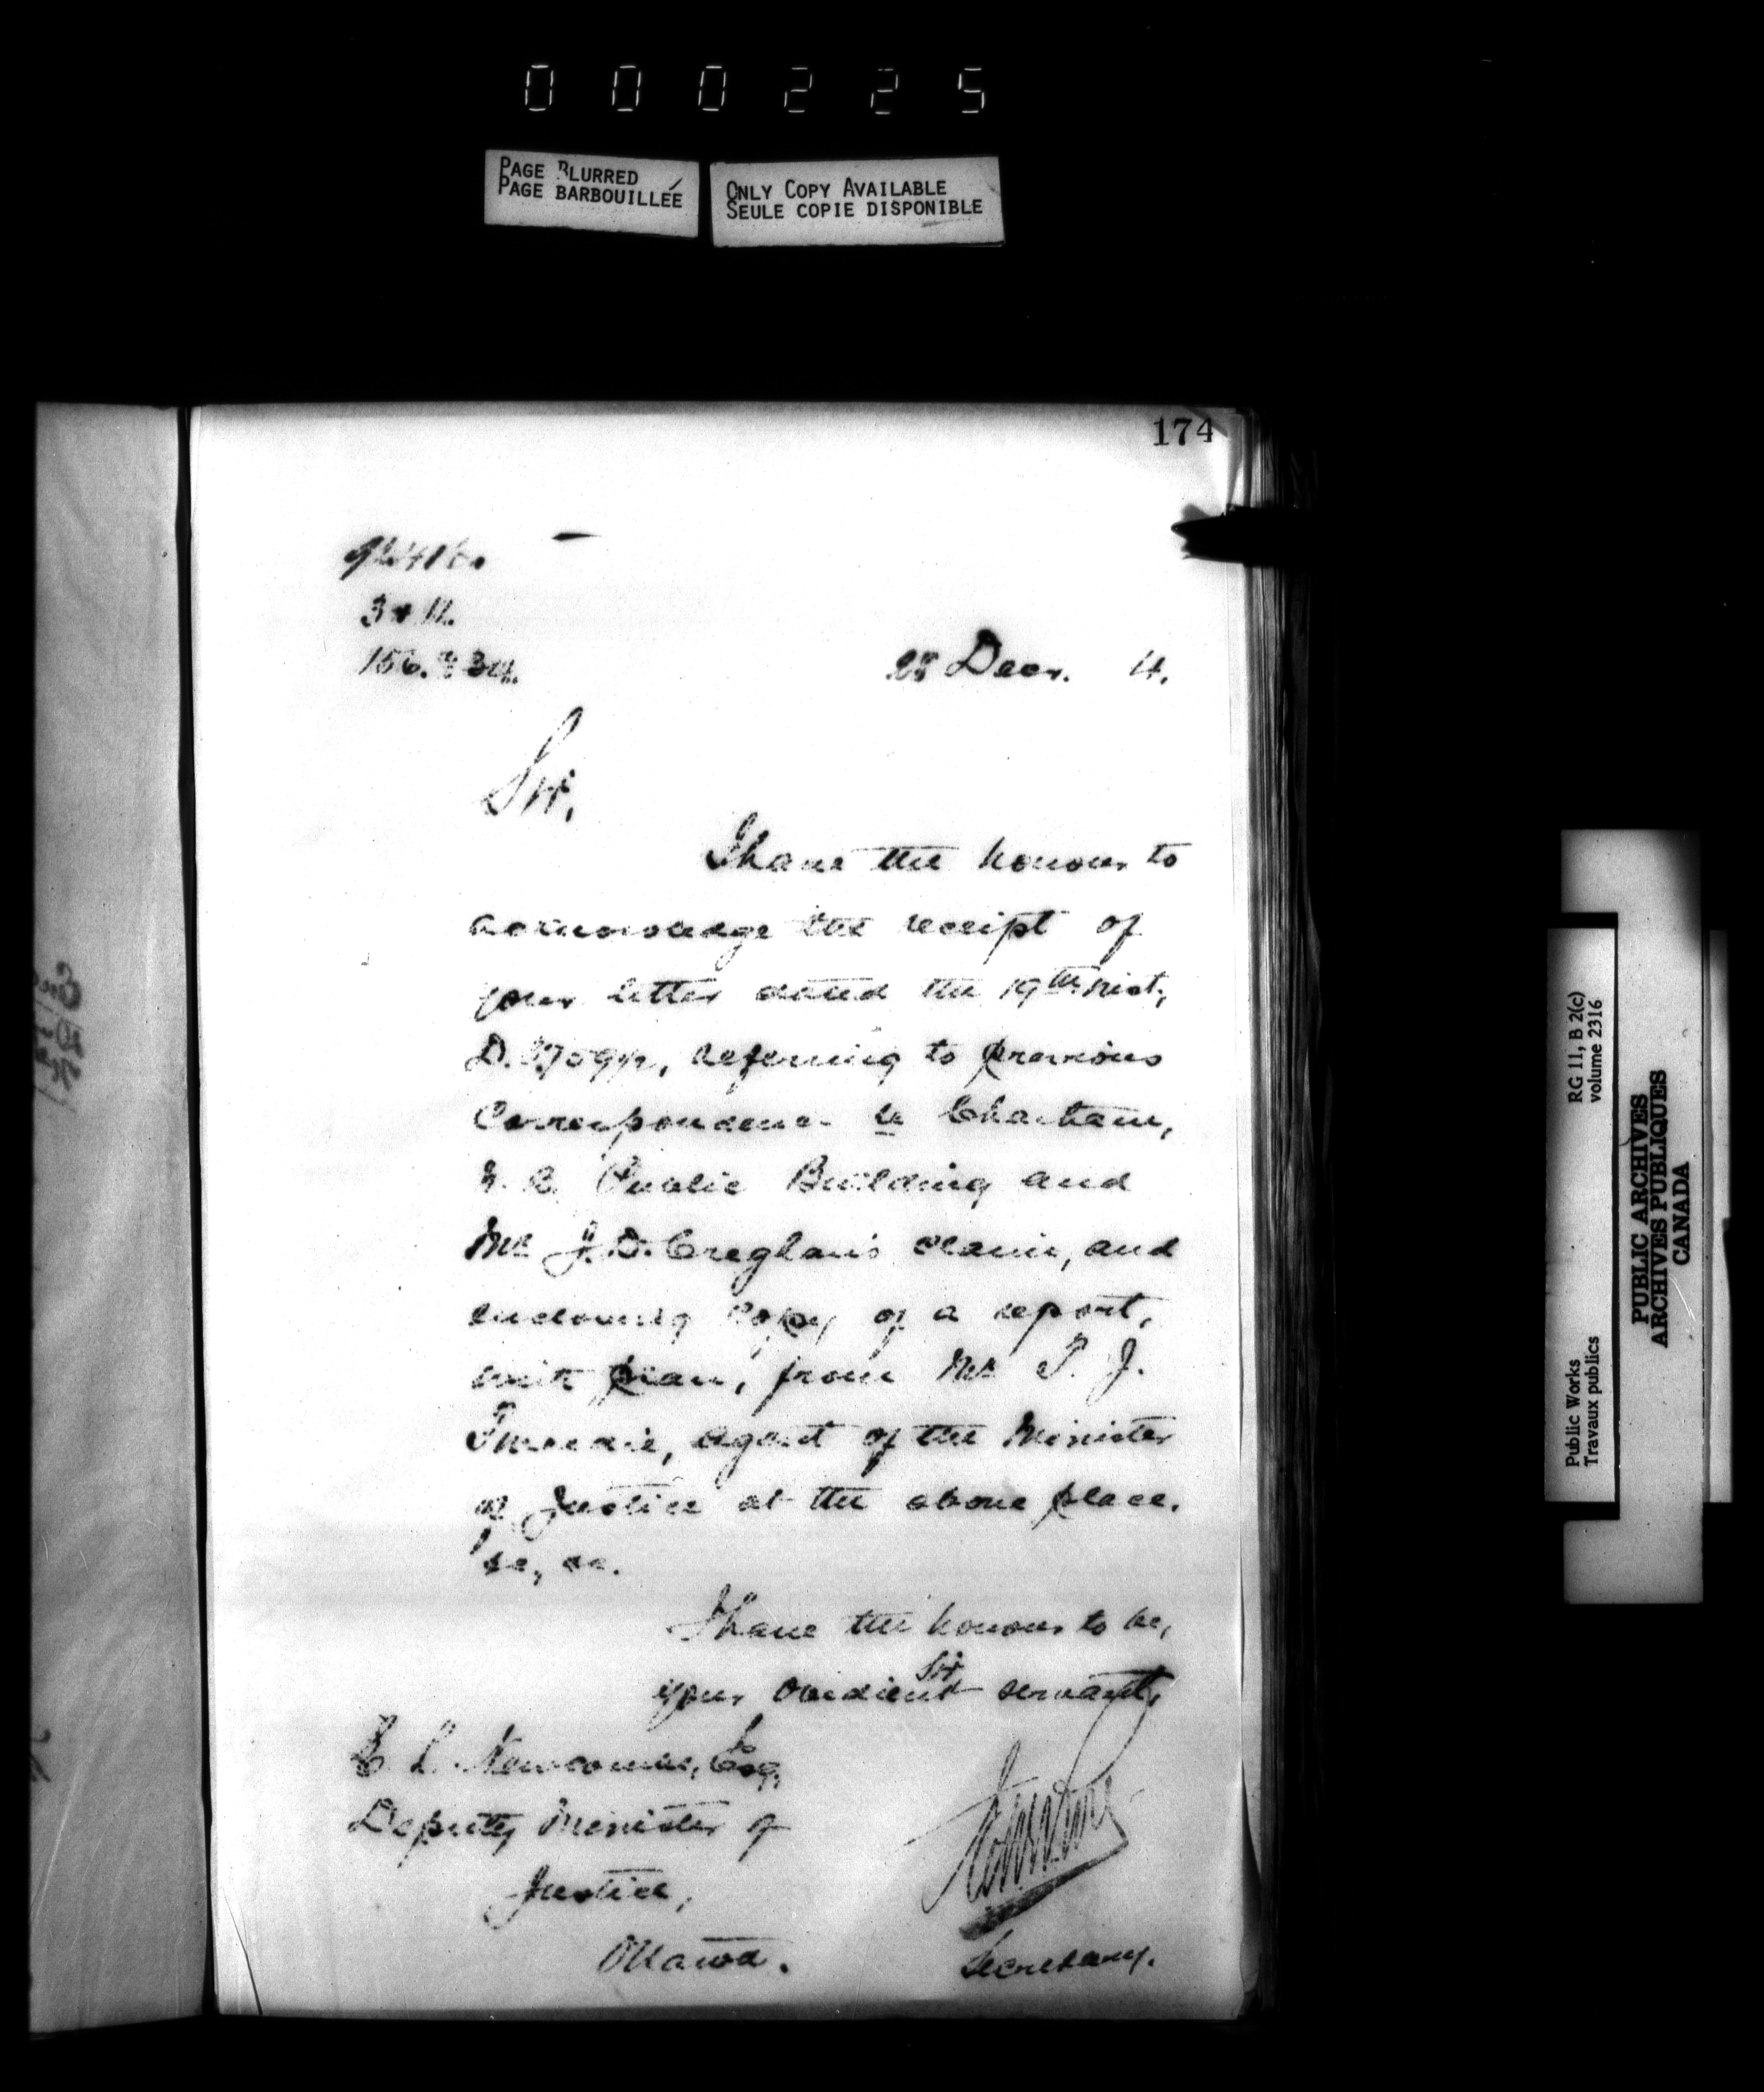 000225
PAGE BLURRED
PAGE BARBOUILLÉE
ONLY COPY AVAILABLE
SEULE COPIE DISPONIBLE
174
28 Decr. 4.
Sir,
I have the honour to
acknowledge the receipt of
your letter dated the 19th inst,
D. referring to previous
Correspondence re Chatham,
N. B. Public Building and
Mr J. D. Creghan's claim, and
enclosing copy of a report,
with plan, from Mr T. J.
agent of the Minister
of Justice at the above place.
&c, &c.
I have the honour to be,
Sir
your obedient servant,
E. L. Newcombe, Esq,
Deputy Minister of
Justice,
Ottawa.
Secretary.
Public Works
Travaux publics
RG 11, B 2(c)
volume 2316
PUBLIC ARCHIVES
ARCHIVES PUBLIQUES
CANADA